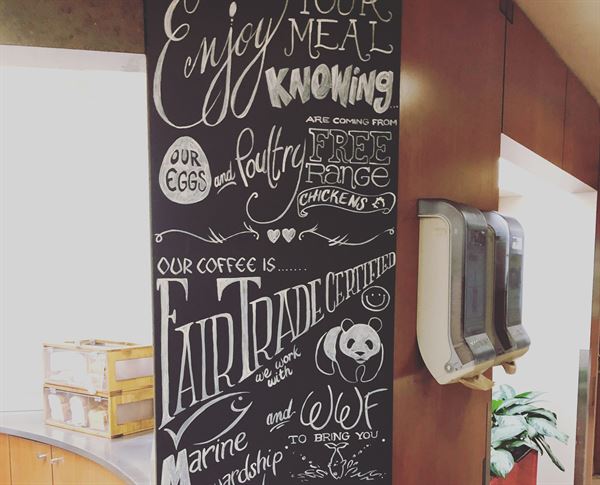 Enjoy YOUR
MEAL
KNOWING...
ARE COMING FROM
OUR
EGGS
and
Poultry
FREE
Range
CHICKENS
OUR COFFEE IS.......
FAIR TRADE CERTIFIED
we work
with
Marine
and
WWF
TO BRING YOU